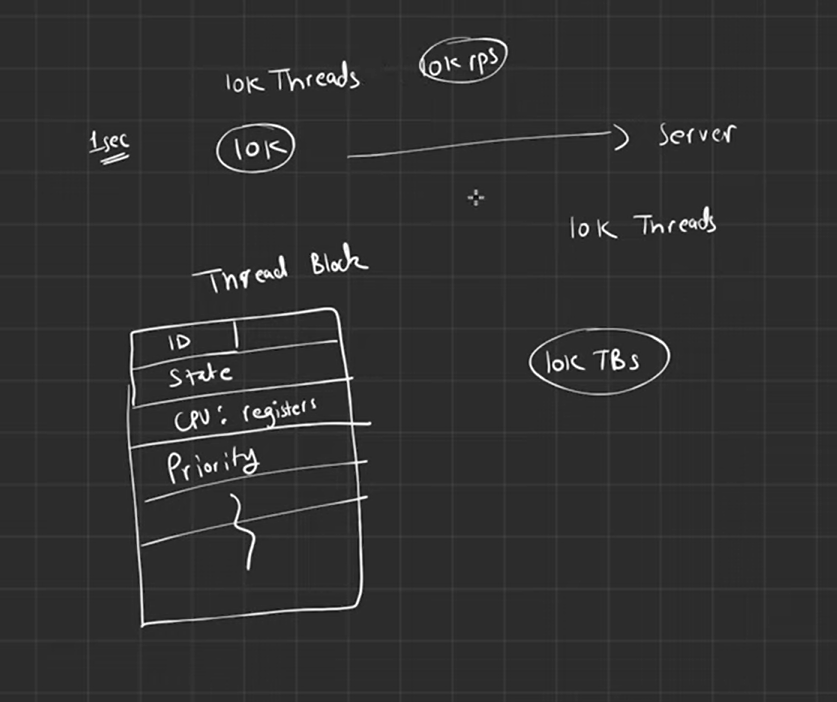 10K Threads
10K rps
1sec
10K
Server
10K Threads
Thread Block
ID
State
CPU: registers
Priority
10K TBs